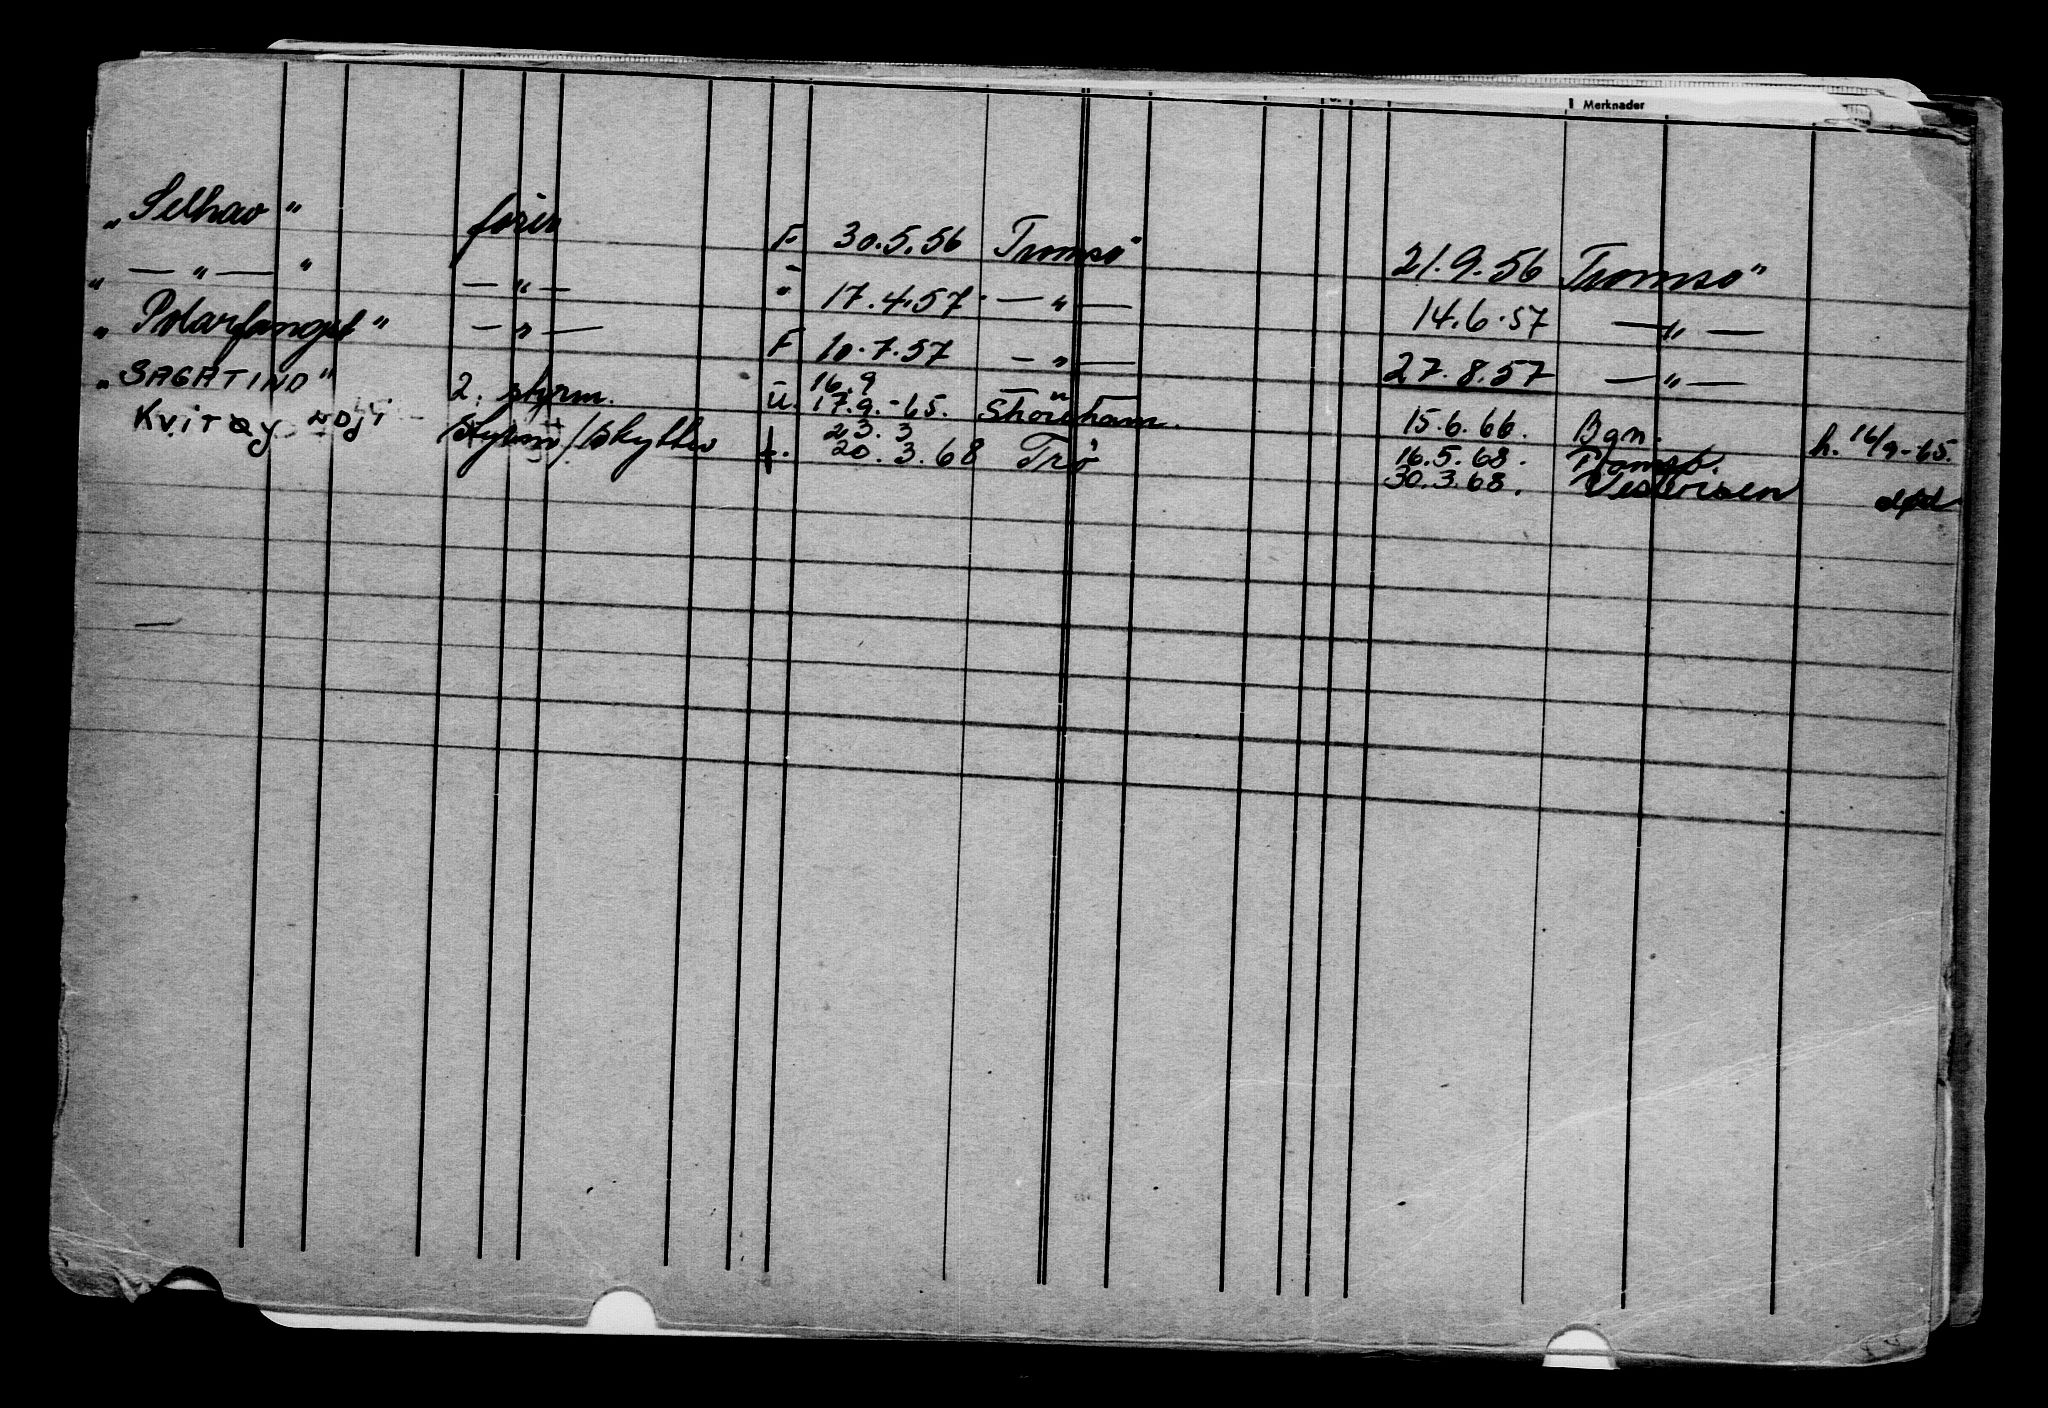 Merknader
"Selhav" fører F 30.5.56 Tromsø 21.9.56 Tromsø
" — " — " — " — " 17.4.57 — " — 14.6.57 — " —
"Polarfangst" — " — F 10.7.57 — " — 27.8.57 — " —
"SAGATIND" 2. styrm. u. 16.9 17.9.-65. Shoreham. 15.6.66. Bgn. h. 16/9-65.
Kvitøy styrm/skytter f. 23.3 20.3.68 Trø 16.5.68. Tromsø.
30.3.68. Vesterisen død